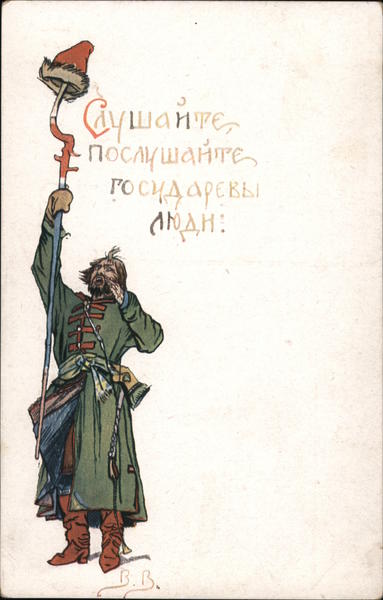 Слушайте,
послушайте
государевы
люди:
В. В.